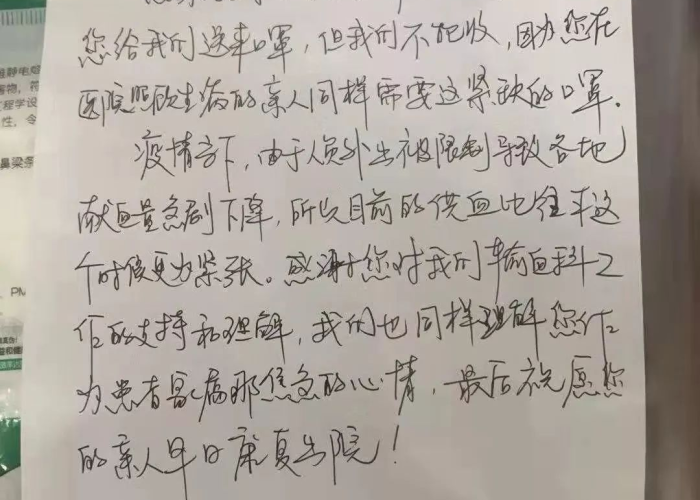 您给我们送来口罩，但我们不能收，因为您在
医院照顾生病的亲人同样需要这紧缺的口罩．
疫情之下，由于人员外出被限制导致各地
献血量急剧下降，所以目前的供血比往年这
个时候更为紧张。感谢您对我们输血科工
作的支持和理解，我们也同样理解您作
为患者家属那焦急的心情，最后祝愿您
的亲人早日康复出院！
静电
物，符
程学设
性，令
鼻梁条
PM